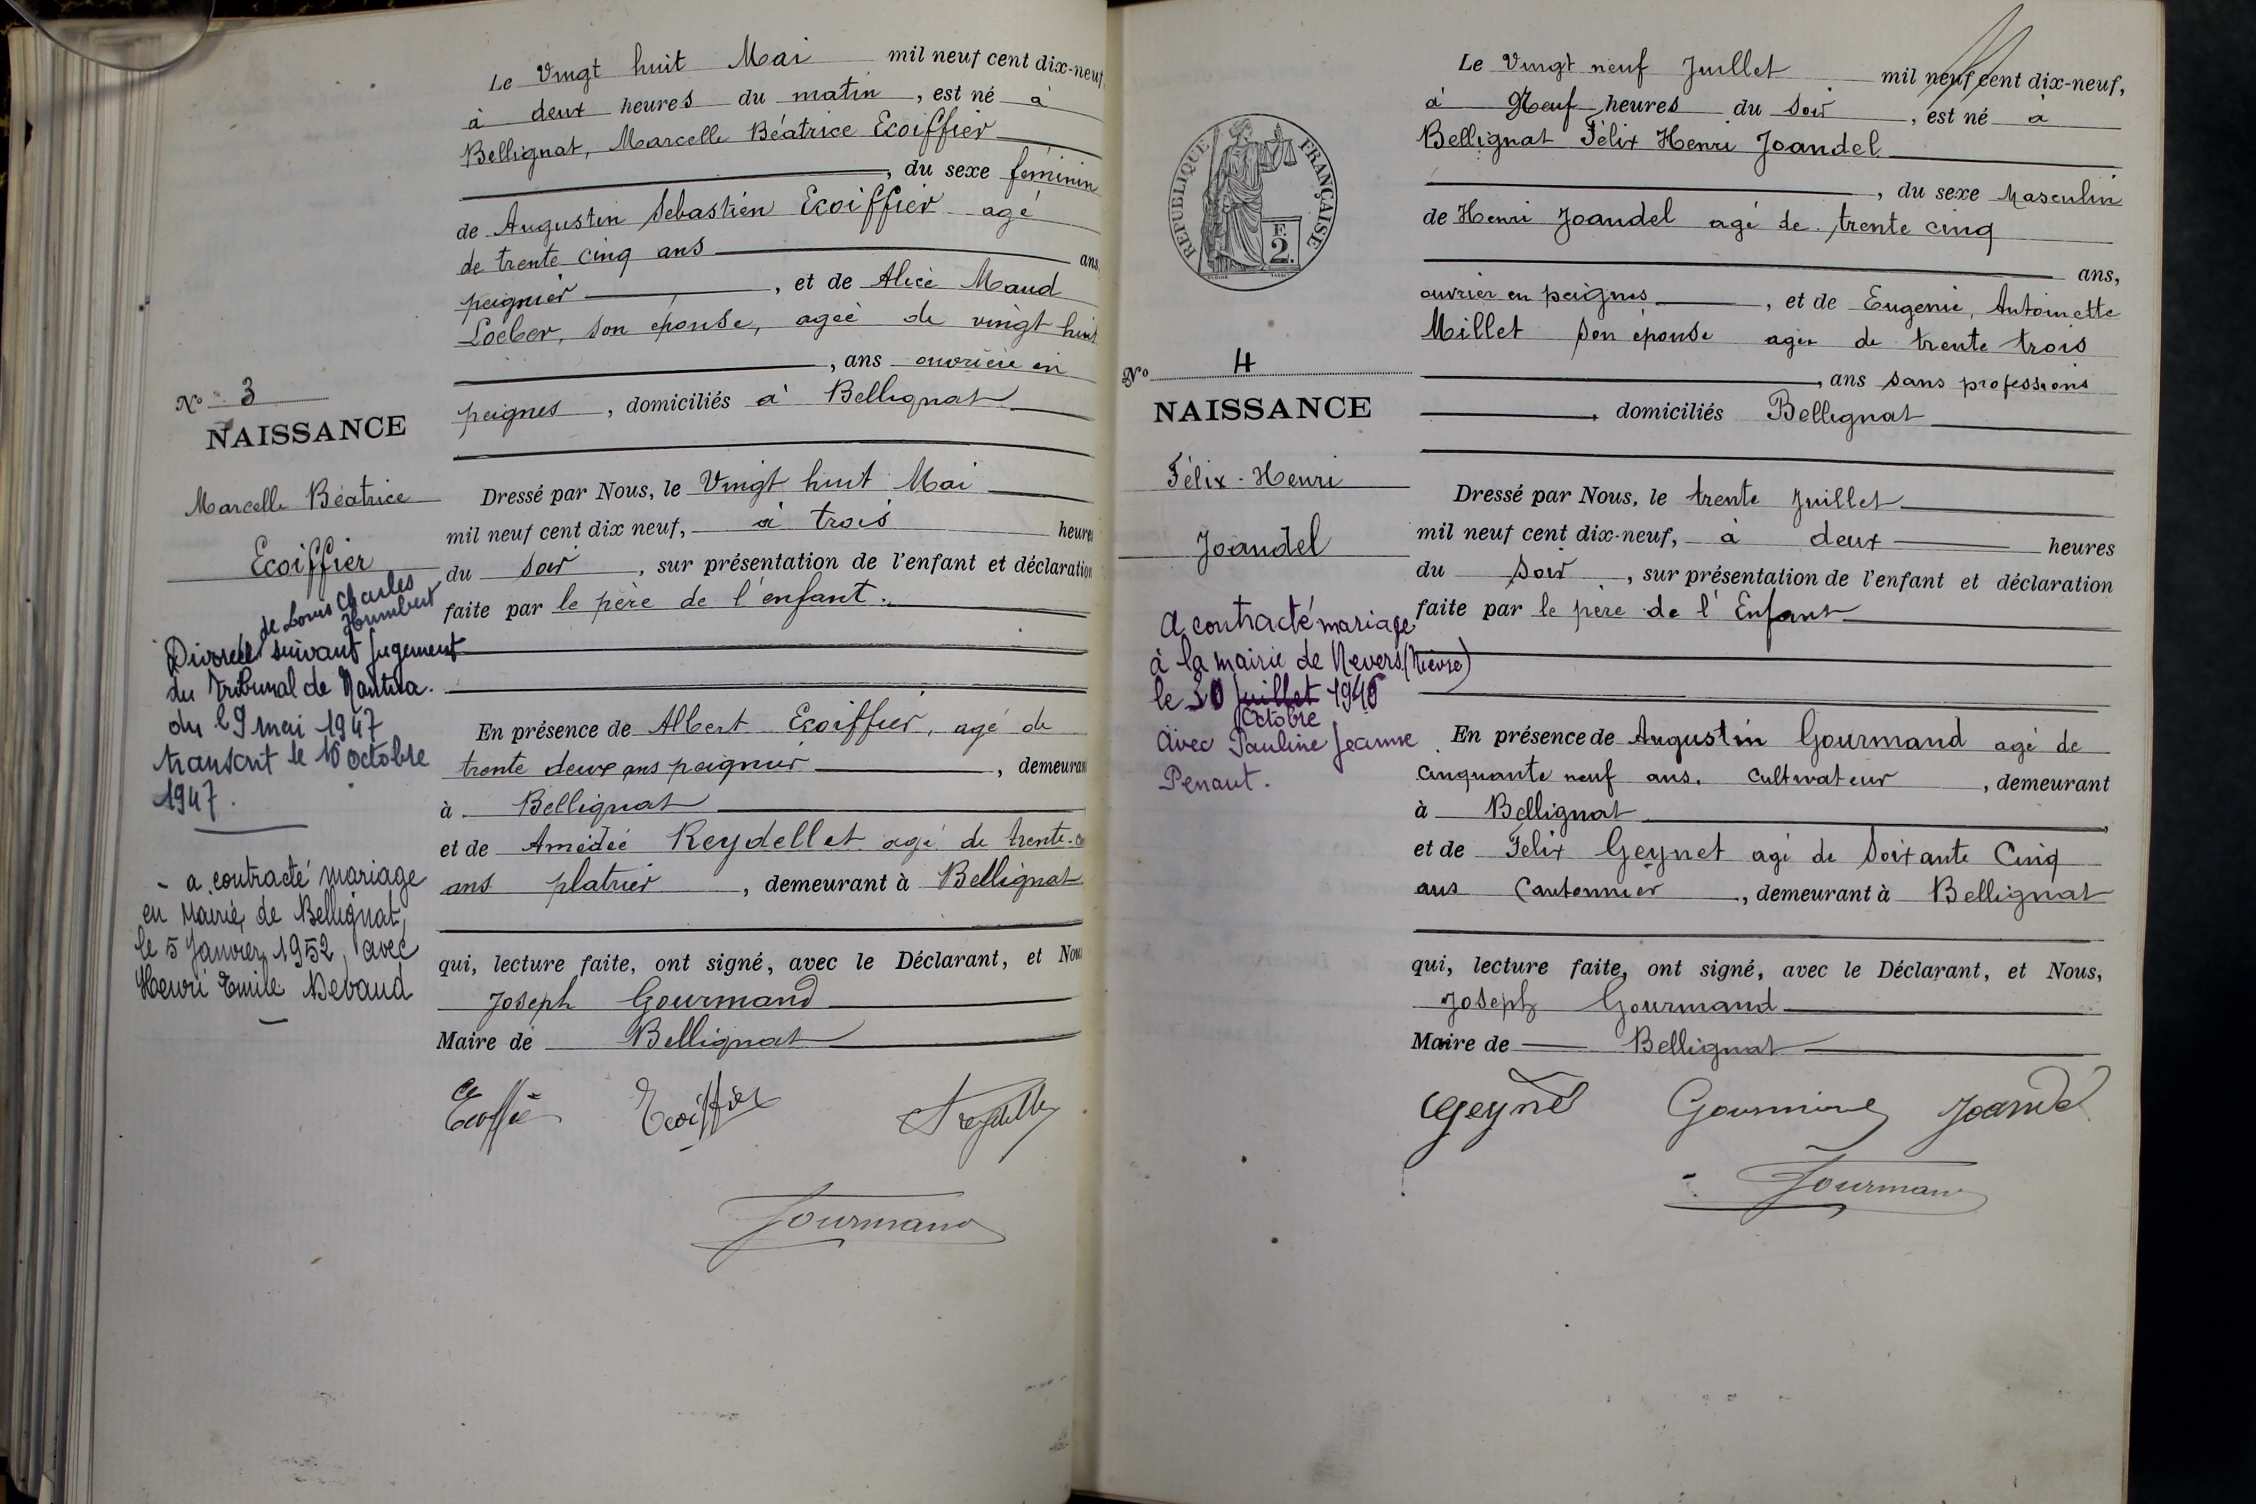 Le Vingt huit Mai mil neuf cent dix-neuf
à deux heures du matin, est né à
Bellignat, Marcelle Béatrice Ecoiffier
, du sexe féminin
de Augustin Sebastien Ecoiffier agé
de trente cinq ans ans,
peignier, et de Alice Maud
Loeber, son épouse, agée de vingt huit
, ans ouvrière en
peignes, domiciliés à Bellignat
N° 3
NAISSANCE
Marcelle Béatrice
Ecoiffier
Dressé par Nous, le Vingt huit Mai
mil neuf cent dix neuf, à trois heures
du soir, sur présentation de l'enfant et déclaration
faite par le père de l'enfant.
de Louis Charles
Humbert
Divorcée suivant jugement
du Tribunal de Nantua.
du 29 mai 1947
transcrit le 16 octobre
1947.
- a contracté mariage
en Mairie de Bellignat,
le 5 Janvier 1952, avec
Henri Emile Debaud
En présence de Albert Ecoiffier, agé de
trente deux ans peignier, demeurant
à Bellignat
et de Amédée Reydellet agé de trente
ans platrier, demeurant à Bellignat
qui, lecture faite, ont signé, avec le Déclarant, et Nous
Joseph Gourmand
Maire de Bellignat
Ecoiffier
Gourmand
Le Vingt neuf Juillet mil neuf cent dix-neuf,
à Neuf heures du soir, est né à
Bellignat Félix Henri Joandel
, du sexe Masculin
de Henri Joandel agé de trente cinq
ans,
ouvrier en peignes, et de Eugenie, Antoinette
Millet son épouse agée de trente trois
, ans sans professions
, domiciliés Bellignat
RÉPUBLIQUE FRANÇAISE
E
2.
N° 4
NAISSANCE
Félix-Henri
Joandel
Dressé par Nous, le trente Juillet
mil neuf cent dix-neuf, à deux heures
du soir, sur présentation de l'enfant et déclaration
faite par le père de l'Enfant
A contracté mariage
à la mairie de Nevers (Nièvre)
le 30 Juillet 1946
Octobre
Avec Pauline Jeanne
Penaut.
En présence de Augustin Gourmand agé de
cinquante neuf ans. Cultivateur, demeurant
à Bellignat
et de Félix Geynet agé de Soixante Cinq
ans Cantonnier, demeurant à Bellignat
qui, lecture faite, ont signé, avec le Déclarant, et Nous,
Joseph Gourmand
Maire de Bellignat
Geynet Gourmand Joandel
Gourmand